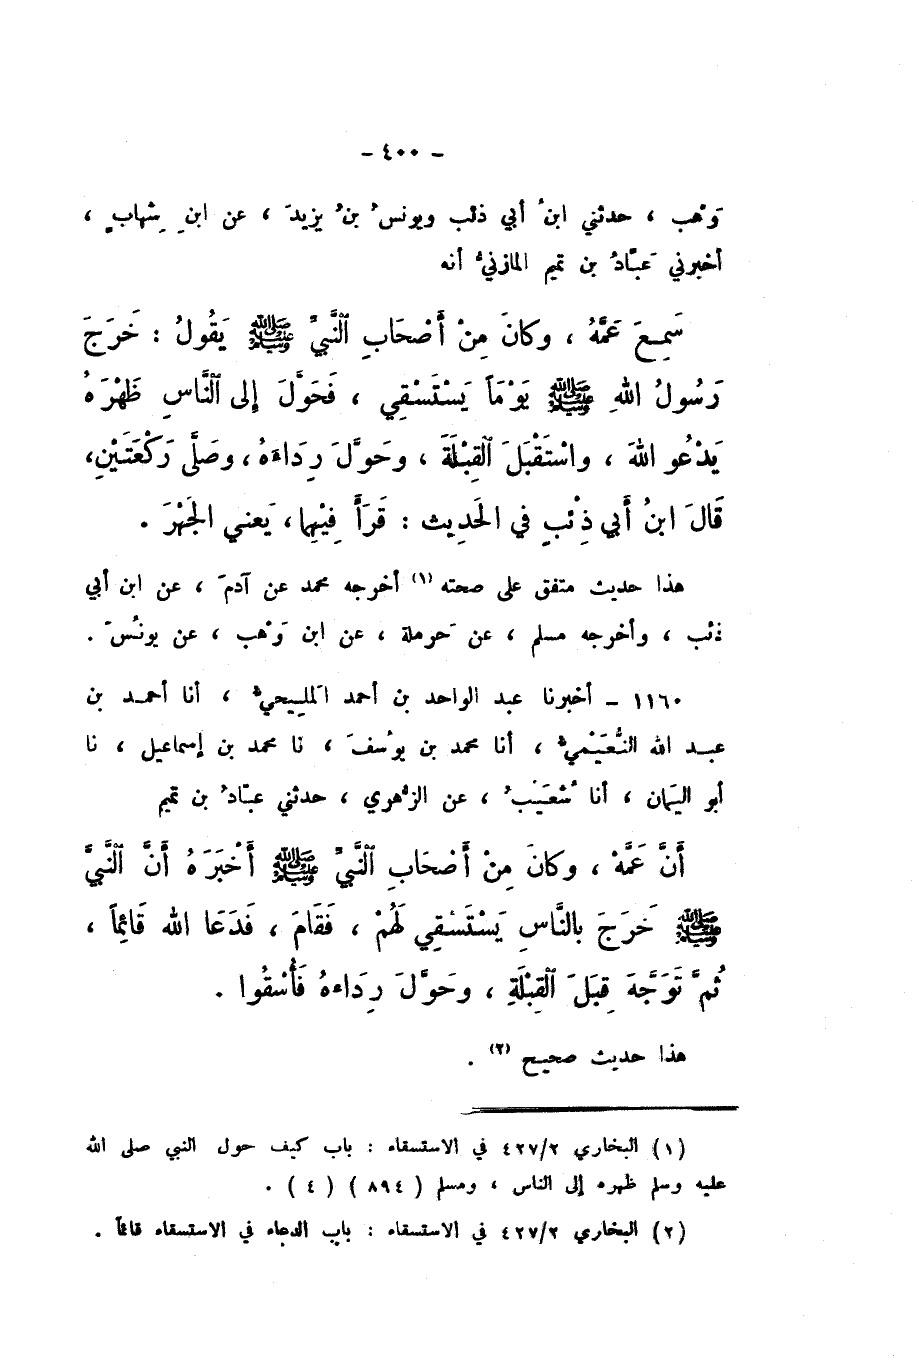 - ٤٠٠ -
وَهْب ، حدثني ابنُ أبي ذئب ويونسُ بنُ يزيدَ ، عن ابنِ شِهابٍ ،
أخبرني عَبّادُ بن تميم المازنيُّ أنه
سَمِعَ عَمَّهُ ، وكانَ مِنْ أَصْحَابِ ٱلنَّبيِّ ﷺ يَقُولُ : خَرَجَ
رَسُولُ اللهِ ﷺ يَوْمَاً يَسْتَسْقِي ، فَحَوَّلَ إلى ٱلنَّاسِ ظَهْرَهُ
يَدْعُو اللهَ ، واسْتَقْبَلَ ٱلقِبْلَةَ ، وحَوَّلَ رِدَاءَهُ ، وصَلَّى رَكْعَتَيْنِ،
قَالَ ابنُ أبي ذِئْبٍ في الحَدِيث : قَرَأَ فِيْهِما ، يَعني الجَهْرَ .
هذا حديث متفق على صحته (١) أخرجه محمد عن آدمَ ، عن ابن أبي
ذئب ، وأخرجه مسلم ، عن حَرملة ، عن ابن وَهْب ، عن يونُسَ .
١١٦٠ – أخبرنا عبد الواحد بن أحمد المَلِيحيُّ ، أنا أحمد بن
عبد الله النُّعَيْميُّ ، أنا محمد بن يوسُفَ ، نا محمد بن إسماعيل ، نا
أبو اليَمان ، أنا شُعَيْبُ ، عن الزُّهري ، حدثني عبّادُ بن تميم
أَنَّ عَمَّهُ ، وكانَ مِنْ أَصْحَابِ ٱلنَّبيِّ ﷺ أَخْبَرَهُ أَنَّ ٱلنَّبيَّ
ﷺ خَرَجَ بالنَّاسِ يَسْتَسْقِي لَهُمْ ، فَقَامَ ، فَدَعَا الله قَائِمَاً ،
ثُمَّ تَوَجَّهَ قِبَلَ ٱلقِبْلَةِ ، وحَوَّلَ رِدَاءهُ فَأُسْقُوا .
هذا حديث صحيح (٢) .
(١) البخاري ٤٢٧/٢ في الاستسقاء : باب كيف حول النبي صلى الله
عليه وسلم ظهره إلى الناس ، ومسلم ( ٨٩٤ ) ( ٤ ) .
(٢) البخاري ٤٢٧/٢ في الاستسقاء : باب الدعاء في الاستسقاء قائماً .